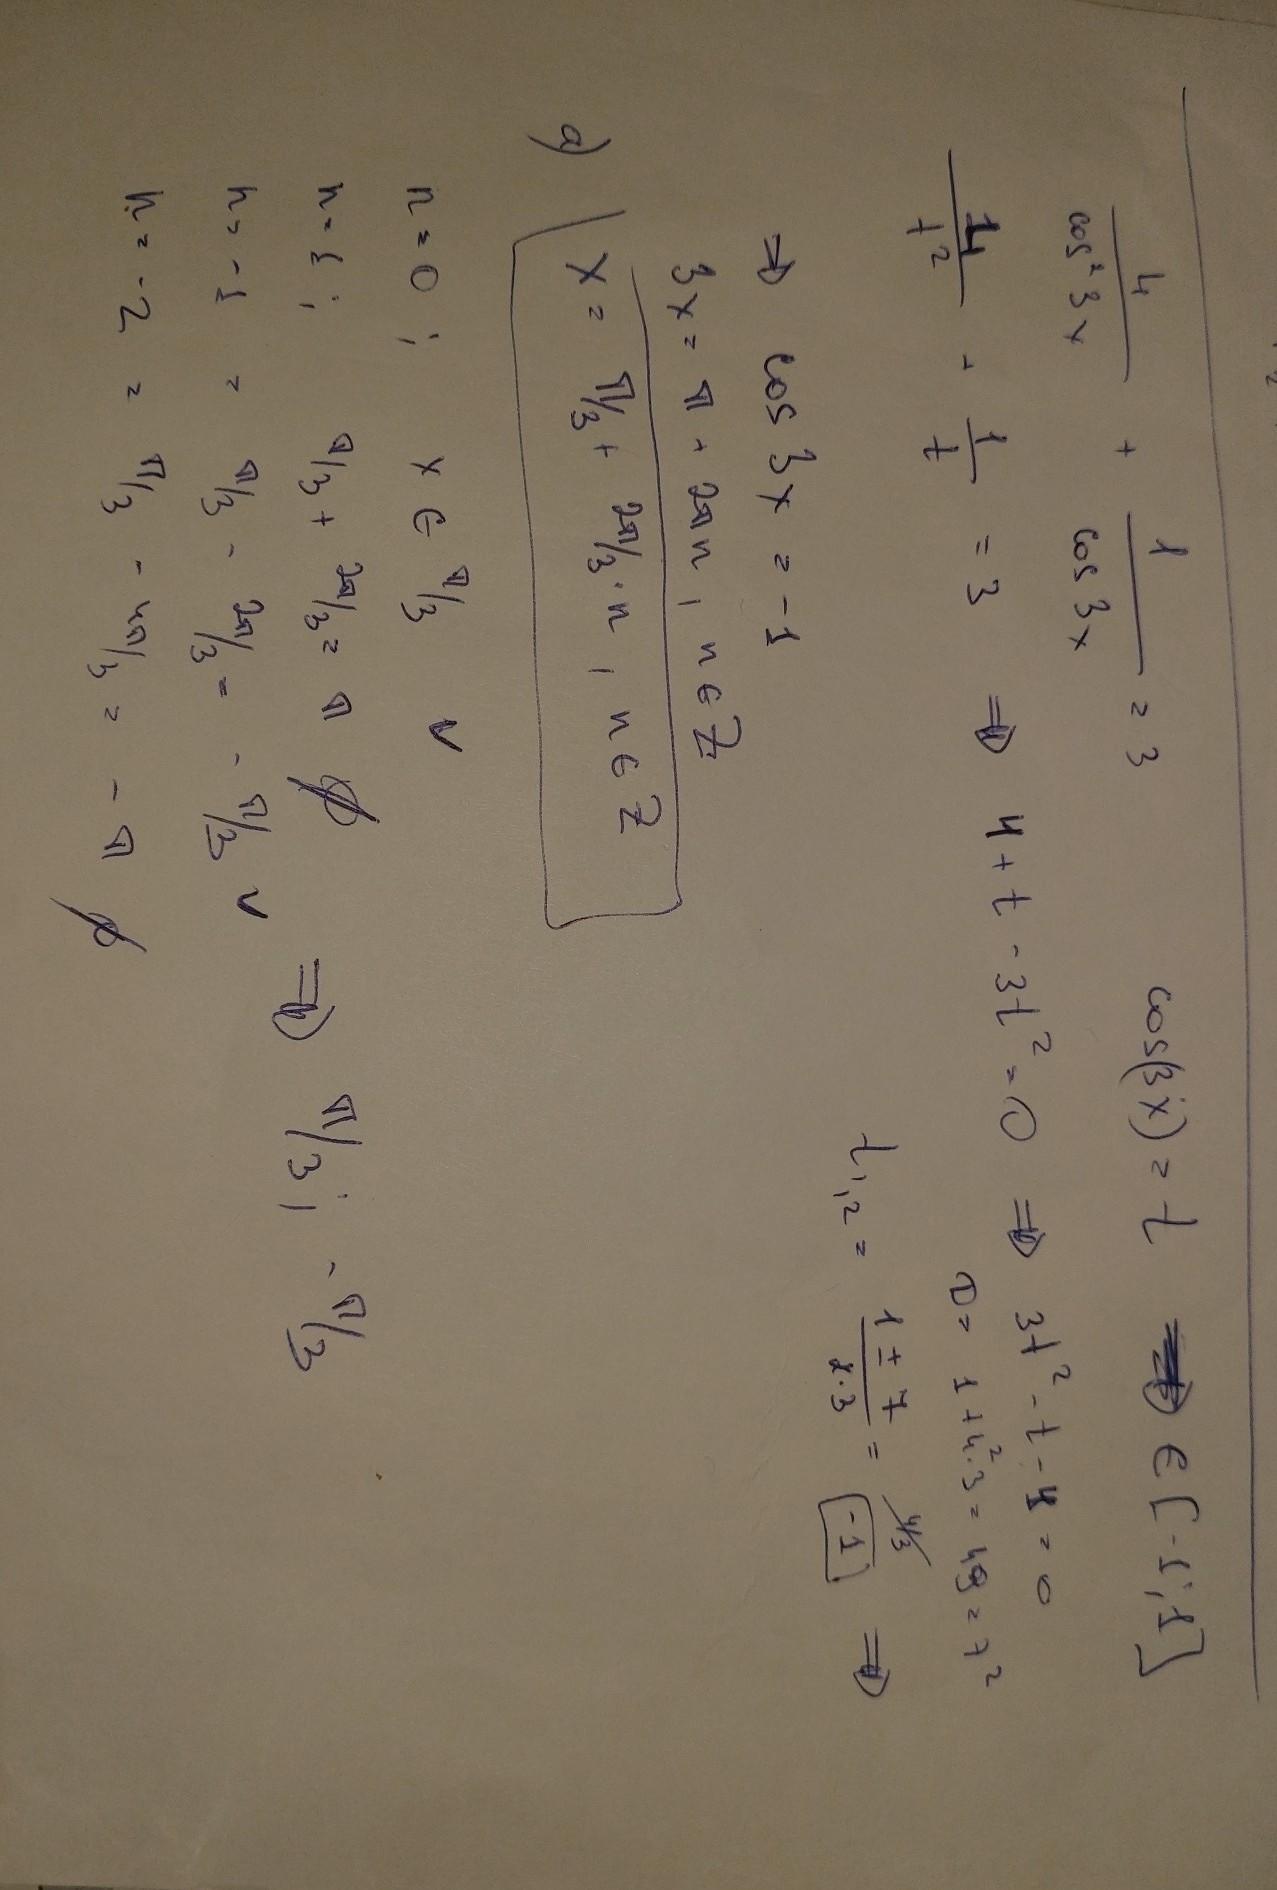 4/cos²3x + 1/cos 3x = 3 cos(3x) = t ⇒ ∈ [-1; 1]
4/t² + 1/t = 3 ⇒ 4 + t - 3t² = 0 ⇒ 3t² - t - 4 = 0
D = 1 + 4²·3 = 49 = 7²
t₁,₂ = (1 ± 7)/(2·3) = 4/3
-1 ⇒
⇒ cos 3x = -1
3x = π + 2πn, n ∈ Z
a) x = π/3 + 2π/3·n, n ∈ Z
n = 0; x ∈ π/3 ✓
n = 1; π/3 + 2π/3 = π ∅
n = -1 = π/3 - 2π/3 = -π/3 ✓ ⇒ π/3; -π/3
n = -2 = π/3 - 4π/3 = -π ∅